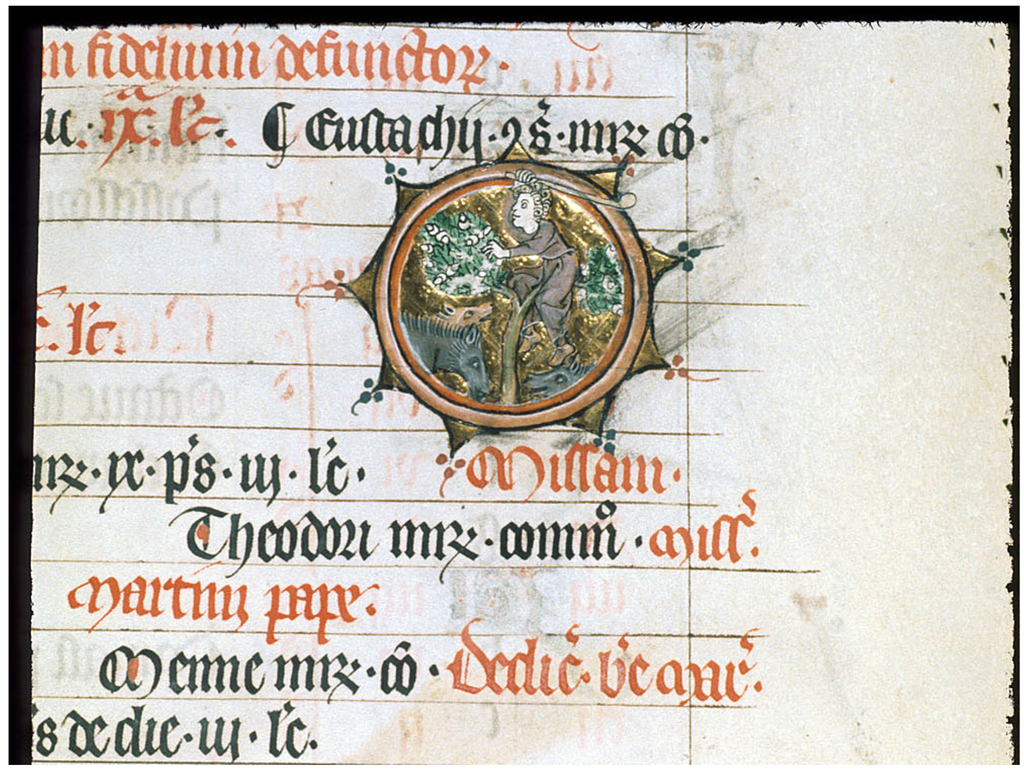 m fidelium defunctoꝝ·
ix. lc̄. ¶ Eustachij · ⁊ s̄ · mrꝝ co̅·
lc̄.
mrꝝ · ix · p̄s · iij · lc̄ · Missam ·
Theodori mrꝝ · commͦ · miss̄.
Martini pape.
Menne mrꝝ · co̅ · Dedic̄ · bc̄e mar̄.
s de die · iij · lc̄.